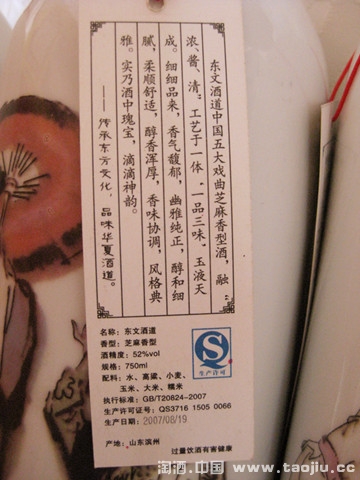 东文酒道中国五大戏曲芝麻香型酒,融“
浓、酱、清”工艺于一体,“一品三味,玉液天
成。细细品来,香气馥郁,幽雅纯正,醇和细
腻,柔顺舒适,醇香浑厚,香味协调,风格典
雅。实乃酒中瑰宝,滴滴神韵。
——传承东方文化,品味华夏酒道。
名称:东文酒道
香型:芝麻香型
酒精度:52%vol
规格:750ml
配料:水、高粱、小麦、
玉米、大米、糯米
执行标准:GB/T20824-2007
生产许可证号:QS3716 1505 0066
生产日期:2007/08/19
产地:山东滨州
过量饮酒有害健康
S
生产许可
淘酒.中国 www.taojiu.cc